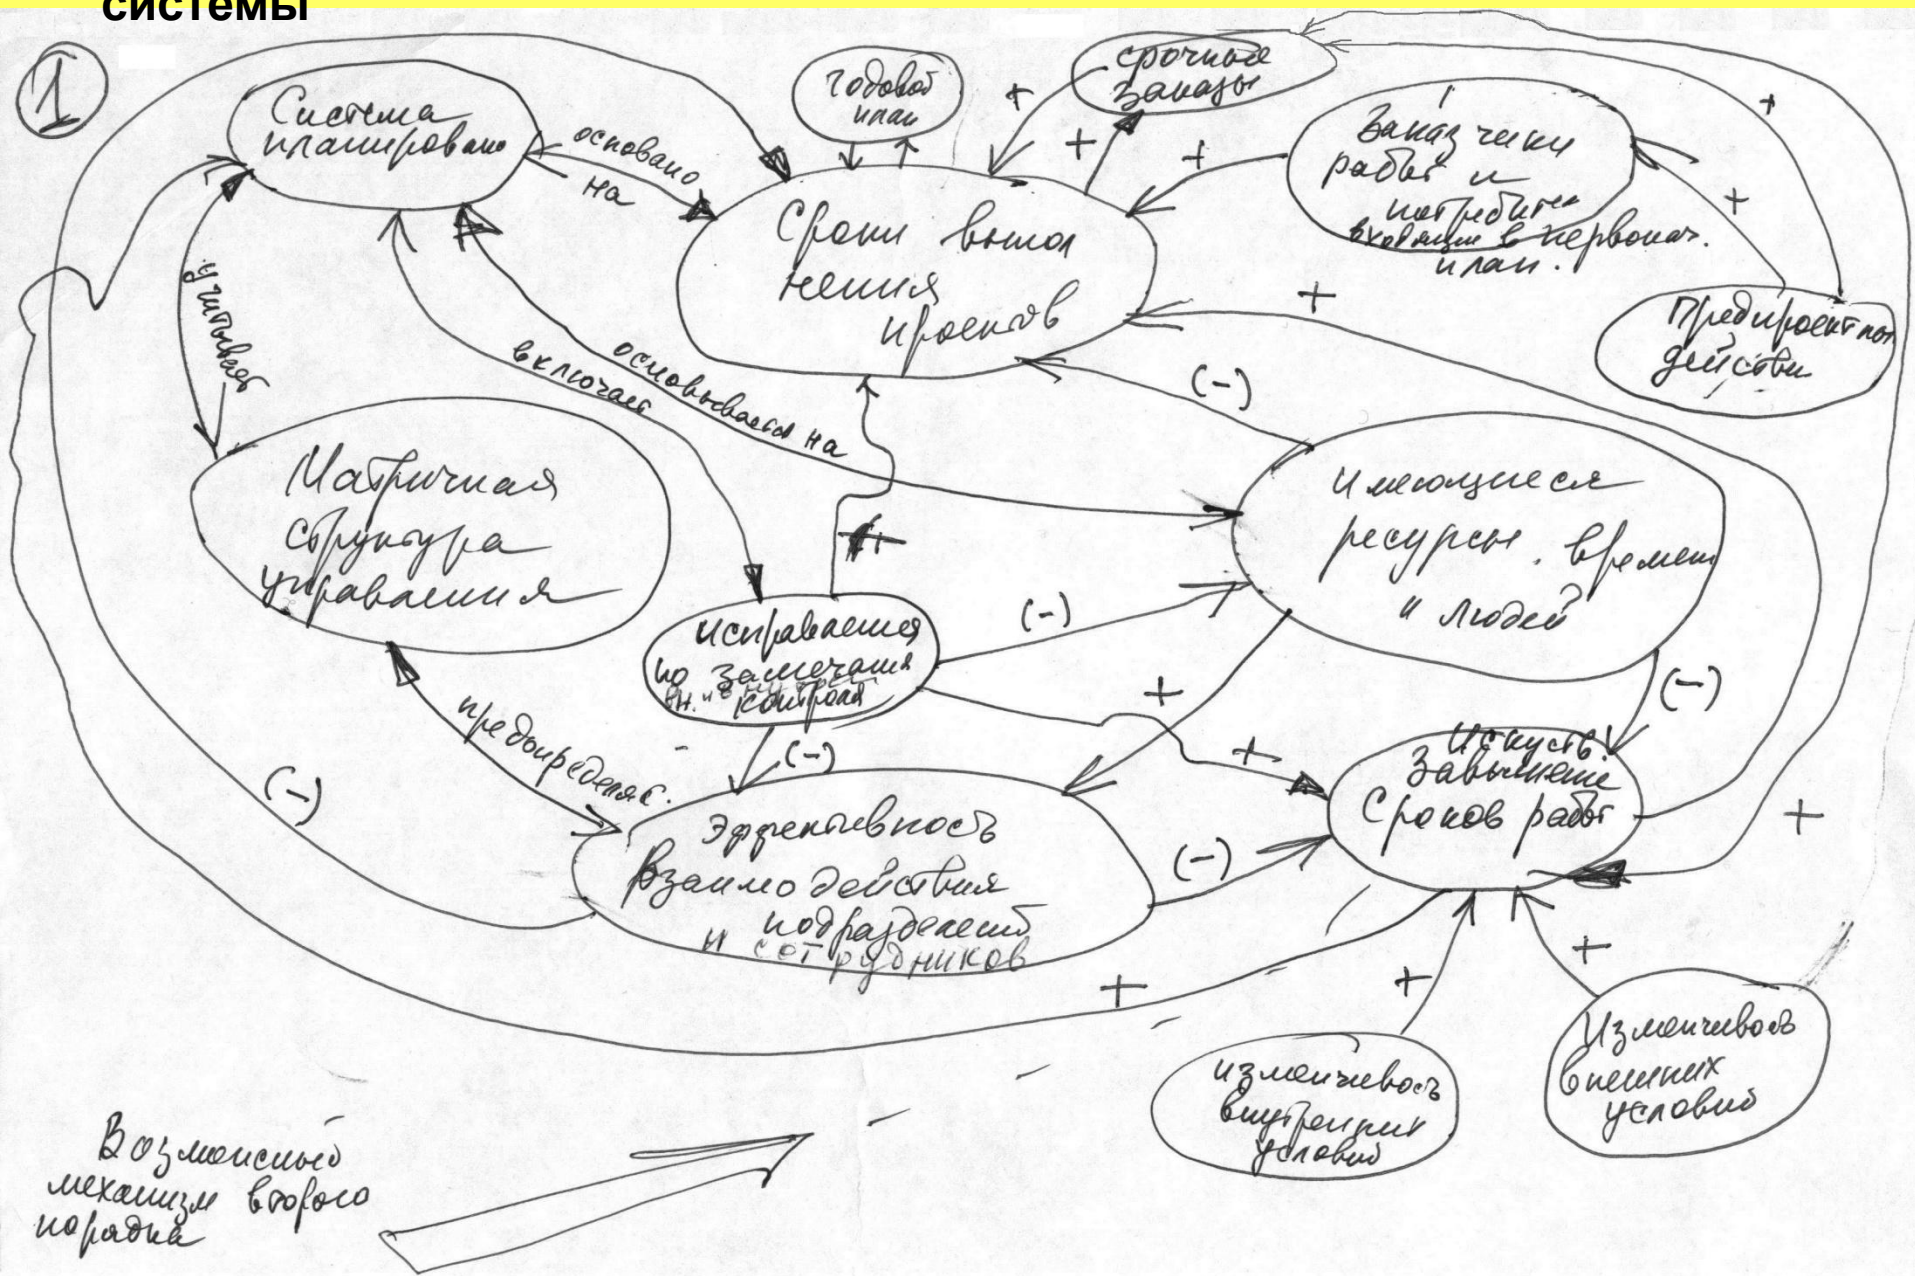 системы
1
Система
планировано
основано
на
годовой
план
срочные
заказы
+
+
+
Заказчики
работ и
потребите
входящие в первонач.
план.
+
+
Сроки выпол
нения
проектов
Предпроектные
действи
учитывает
включает
основывается на
+
(-)
Матричная
структура
управления
Имеющиеся
ресурсы времени
и людей
+
Исправления
по замечания
контроля
(-)
(-)
+
+
(-)
предопределяс.
(-)
Искуств!
Завышение
Сроков работ
+
Эффективность
Взаимодействия
подразделений
и сотрудников
(-)
+
+
+
Изменчивость
внутренних
условий
Изменчивость
внешних
условий
Возможный
механизм второго
порядка